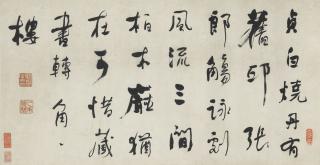 貞白燒丹有
舊邱張
郎觴詠刻
風流三間
柏木廳猶
在可惜藏
書轉角
樓